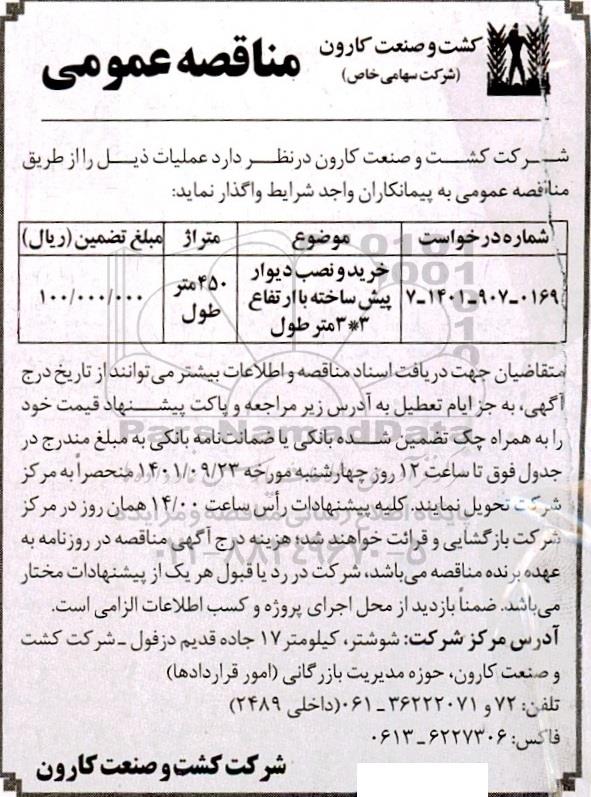 کشت و صنعت کارون
(شرکت سهامی خاص)
مناقصه عمومی
شــرکت کشــت و صنعت کارون درنظــر دارد عملیات ذیــل را از طریق
مناقصه عمومی به پیمانکاران واجد شرایط واگذار نماید:
شماره درخواست | موضوع | متراژ | مبلغ تضمین (ریال)
۷-۱۴۰۱-۹۰۷-۰۱۶۹ | خرید و نصب دیوار پیش ساخته با ارتفاع ۳*۳ متر طول | ۴۵۰ متر طول | ۱۰۰/۰۰۰/۰۰۰
متقاضیان جهت دریافت اسناد مناقصه و اطلاعات بیشتر می توانند از تاریخ درج
آگهی، به جز ایام تعطیل به آدرس زیر مراجعه و پاکت پیشــنهاد قیمت خود
را به همراه چک تضمین شــده بانکی یا ضمانت‌نامه بانکی به مبلغ مندرج در
جدول فوق تا ساعت ۱۲ روز چهارشنبه مورخه ۱۴۰۱/۰۹/۲۳ منحصراً به مرکز
شرکت تحویل نمایند. کلیه پیشنهادات رأس ساعت ۱۴/۰۰ همان روز در مرکز
شرکت بازگشایی و قرائت خواهند شد؛ هزینه درج آگهی مناقصه در روزنامه به
عهده برنده مناقصه می‌باشد، شرکت در رد یا قبول هر یک از پیشنهادات مختار
می‌باشد. ضمناً بازدید از محل اجرای پروژه و کسب اطلاعات الزامی است.
آدرس مرکز شرکت: شوشتر، کیلومتر ۱۷ جاده قدیم دزفول - شرکت کشت
و صنعت کارون، حوزه مدیریت بازرگانی (امور قراردادها)
تلفن: ۷۲ و ۳۶۲۲۲۰۷۱-۰۶۱ (داخلی ۲۴۸۹)
فاکس: ۶۲۲۷۳۰۶-۰۶۱۳
شرکت کشت و صنعت کارون
ParsNamadData
پایگاه اطلاع رسانی مناقصه و مزایده
۰۲۱-۸۸۳۴۹۶۷۰-۵